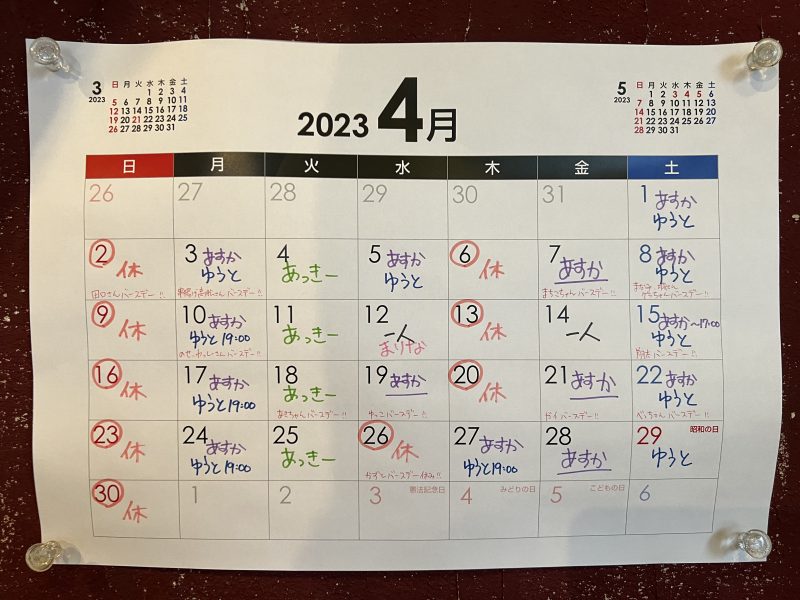 3
2023
日 月 火 水 木 金 土
1 2 3 4
5 6 7 8 9 10 11
12 13 14 15 16 17 18
19 20 21 22 23 24 25
26 27 28 29 30 31
2023 4月
5
2023
日 月 火 水 木 金 土
1 2 3 4 5 6
7 8 9 10 11 12 13
14 15 16 17 18 19 20
21 22 23 24 25 26 27
28 29 30 31
日 月 火 水 木 金 土
26 27 28 29 30 31 1 あすか
ゆうと
2 休
田口さんバースデー!!
3 あすか
ゆうと
バースデー!!
4
あっきー
5 あすか
ゆうと
6 休
7
あすか
まちこちゃんバースデー!!
8 あすか
ゆうと
バースデー!!
9 休
10 あすか
ゆうと19:00
バースデー!!
11
あっきー
12
一人
まりな
13 休
14
一人
15 あすか〜17:00
ゆうと
バースデー!!
16 休
17 あすか
ゆうと19:00
18
あっきー
バースデー!!
19 あすか
バースデー!!
20 休
21 あすか
ダイバースデー!!
22 あすか
ゆうと
べっちゃんバースデー!!
23 休
24 あすか
ゆうと19:00
25
あっきー
26 休
かずとバースデー休み!!
27 あすか
ゆうと19:00
28
あすか
29 昭和の日
ゆうと
30 休
1 2 3 憲法記念日 4 みどりの日 5 こどもの日 6